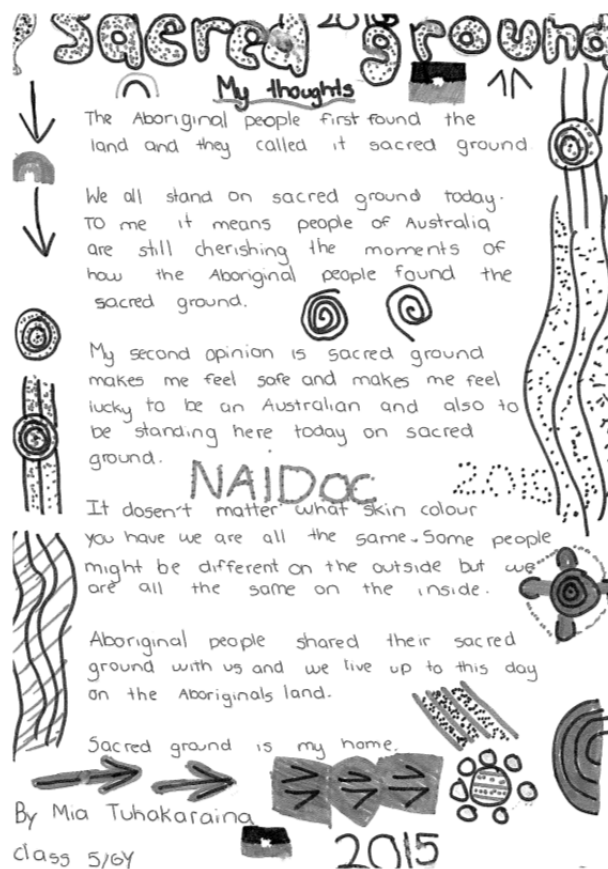 2015
Sacred ground
My thoughts
The Aboriginal people first found the
land and they called it sacred ground
We all stand on sacred ground today.
To me it means people of Australia
are still cherishing the moments of
how the Aboriginal people found the
sacred ground.
My second opinion is sacred ground
makes me feel safe and makes me feel
lucky to be an Australian and also to
be standing here today on sacred
ground.
NAIDOC 2015
It dosen't matter what skin colour
you have we are all the same. Some people
might be different on the outside but we
are all the same on the inside.
Aboriginal people shared their sacred
ground with us and we live up to this day
on the Aboriginals land.
Sacred ground is my home.
By Mia Tuhakaraina
class 5/6Y
2015